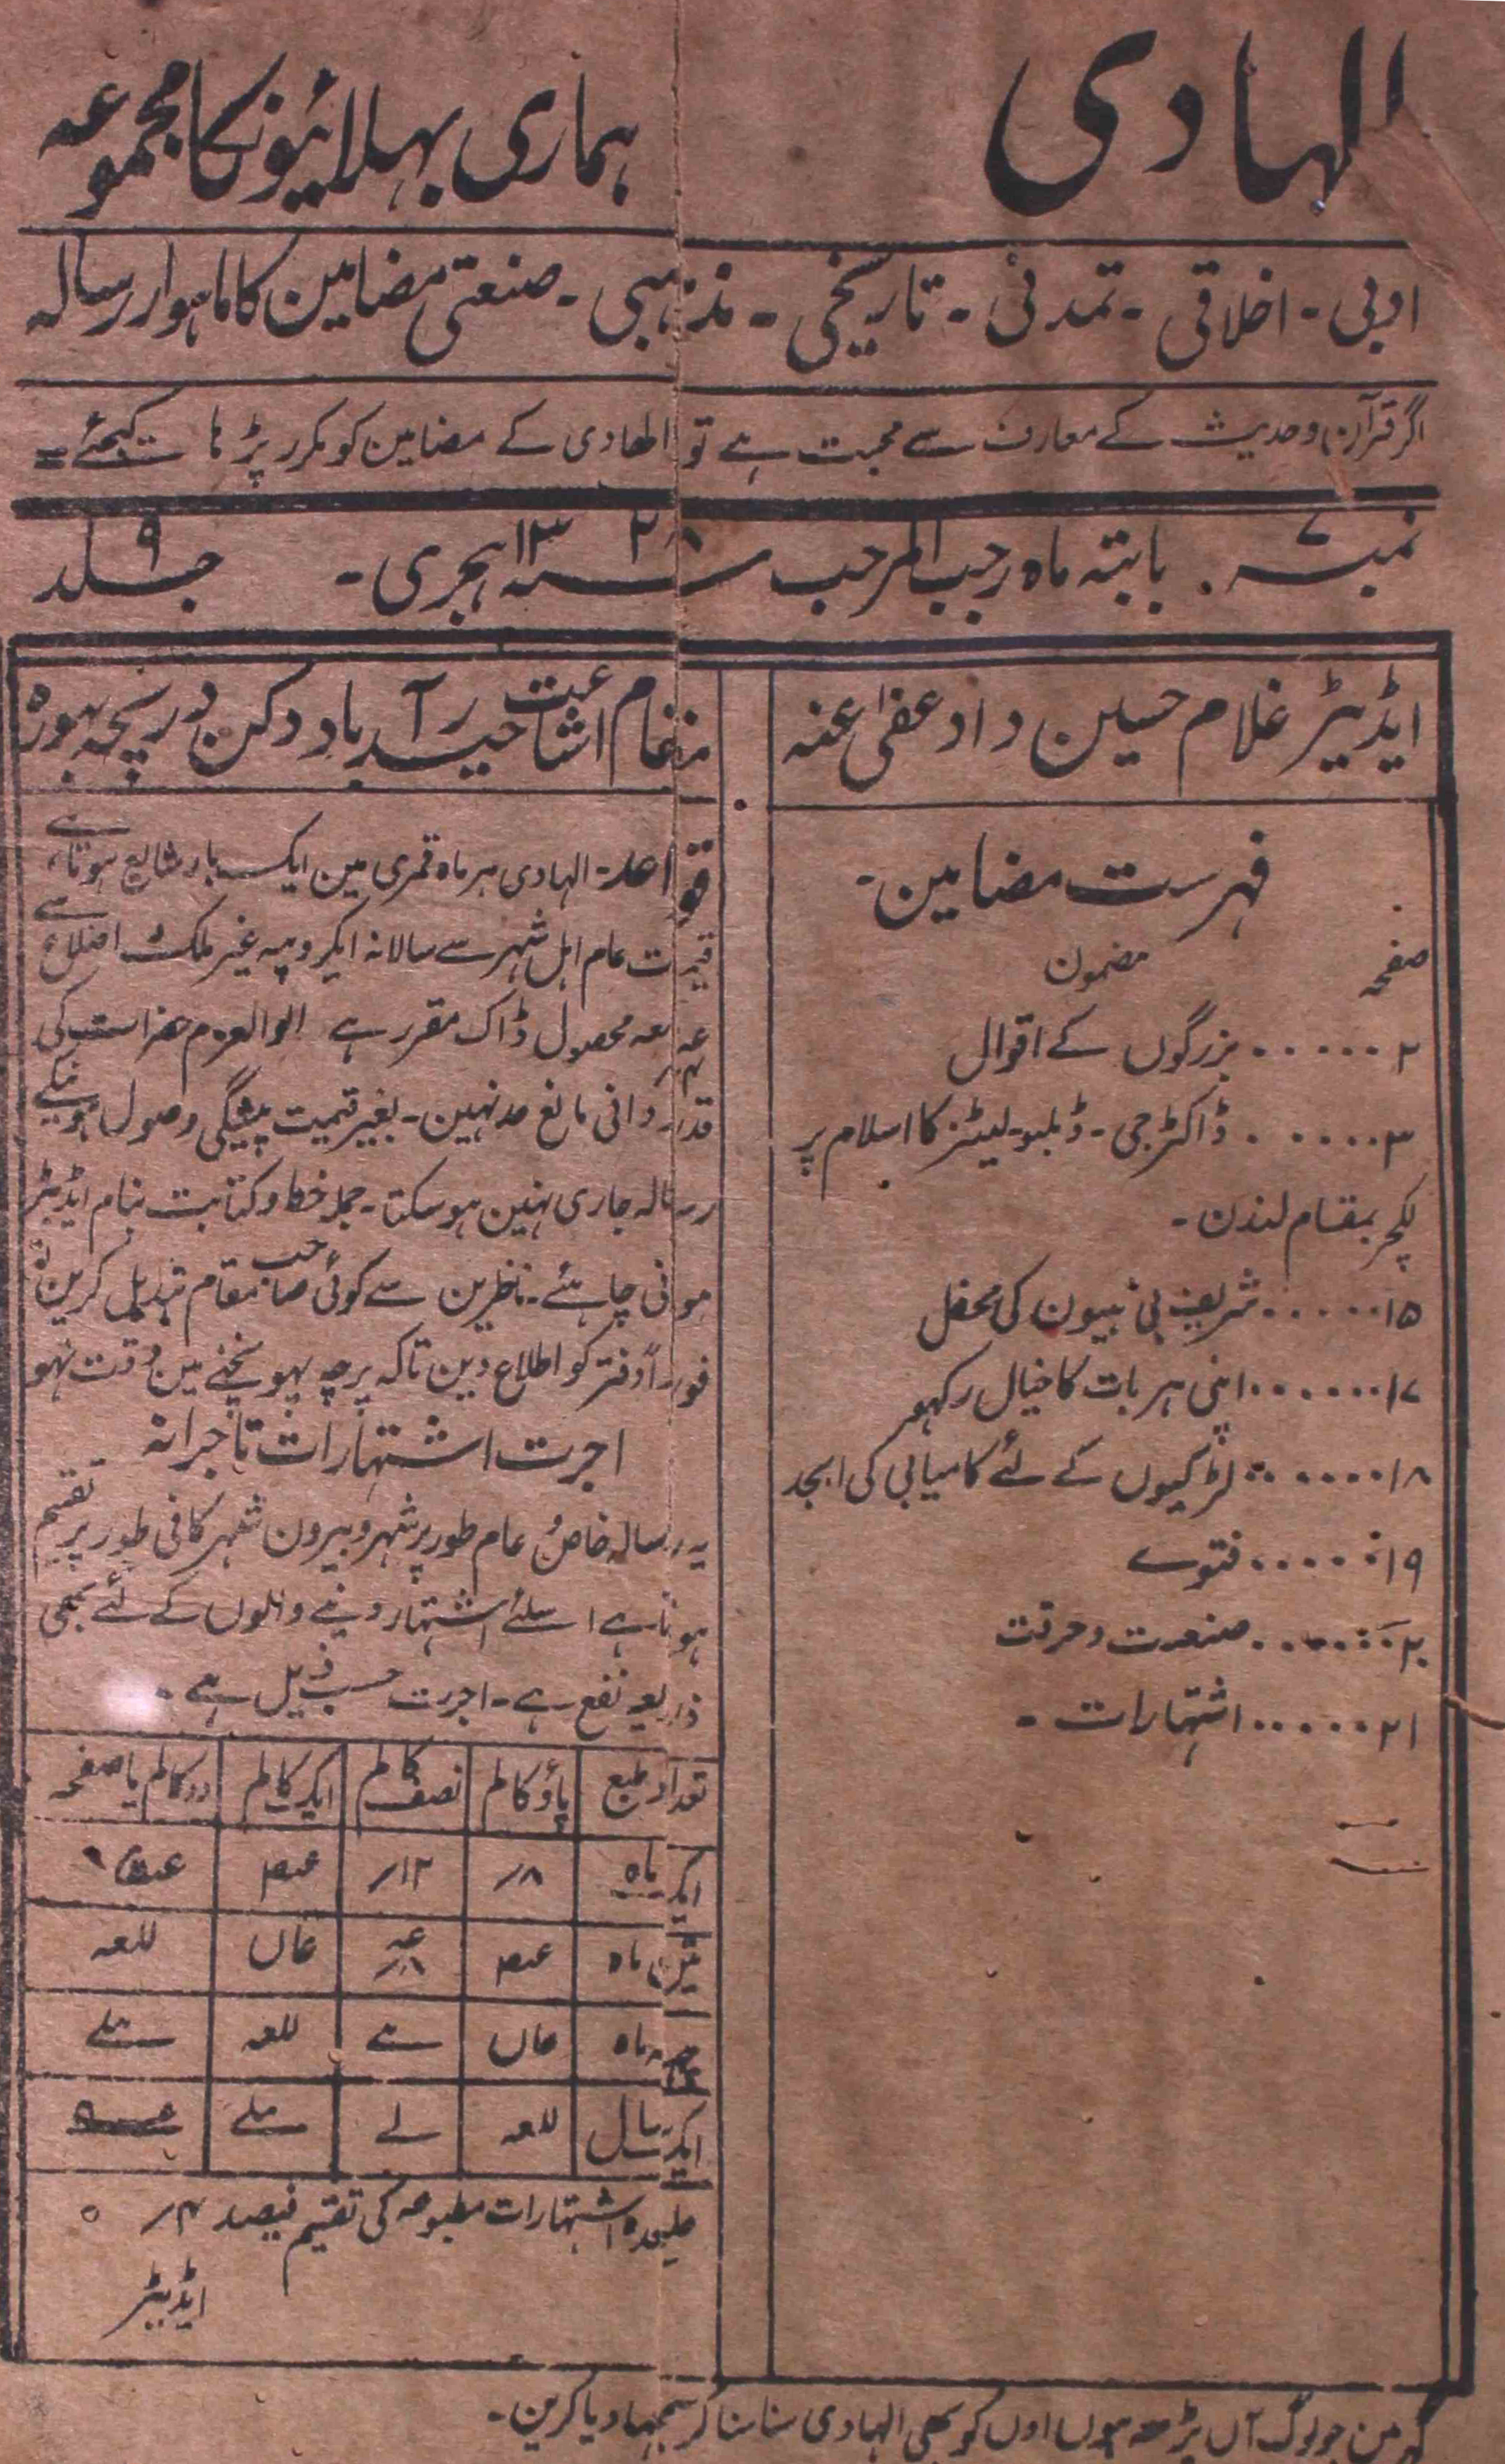 الہادی
ہماری بھلائیونکا مجموعہ
ادبی ۔ اخلاقی ۔ تمدنی ۔ تاریخی ۔ مذہبی ۔ صنعتی مضامین کا ماہوار رسالہ
اگر قرآن وحدیث کے معارف سے محبت ہے تو الھادی کے مضامین کو مکرر پڑہا کیجئے =
نمبر ۷ . بابتہ ماہ رجب المرجب ۱۳۲۸ ہجری ۔ جلد ۹
ایڈیٹر غلام حسین داد عفی عنہ
فہرست مضامین ۔
صفحہ مضمون
۲ ...... بزرگوں کے اقوال
۳ ...... ڈاکٹر جی ۔ ڈبلیو ۔ لیٹز کا اسلام پر
لکچر بمقام لندن ۔
۱۵ ...... شریف بی بیون کی محفل
۱۷ ...... اپنی ہر بات کا خیال رکہو
۱۸ ...... لڑکیوں کے لئے کامیابی کی ابجد
۱۹ ...... فتوے
۲۰ ...... صنعت وحرفت
۲۱ ...... اشتہارات ۔
مقام اشاعت حیدرآباد دکن دریچہ بہورہ
قواعد ۔ الہادی ہر ماہ قمری مین ایک بار شایع ہوتا ہے
قیمت عام اہل شہر سے سالانہ ایکروپیہ غیر ملک اضلاع سے
معہ محصول ڈاک مقرر ہے الوالعزم حضرات کی
قدردانی مانع مد نہین ۔ بغیر قیمت پیشگی وصول ہونیکے
رسالہ جاری نہین ہوسکتا ۔ جملہ خط وکتابت بنام ایڈیٹر
ہونی چاہئے ۔ ناظرین سے کوئی صاحب مقام تبدیل کرین تو
فوراً دفتر کو اطلاع دین تاکہ پرچہ پہونچنے مین دقت نہو
اجرت اشتہارات تاجرانہ
یہ رسالہ خاص و عام طور پر شہر وبیرون شہر کافی طور پر تقسیم
ہوتا ہے اسلئے اشتہار دینے والوں کے لئے بھی
ذریعہ نفع ہے ۔ اجرت حسب ذیل ہے ۔
تعداد طبع پاؤ کالم نصف کالم ایک کالم دو کالم یا صفحہ
ایک ماہ ۸ر ۱۲ر
تین ماہ
چھہ ماہ
ایک سال
علیحدہ اشتہارات مطبوعہ کی تقسیم فیصد ۴ر
ایڈیٹر
گھر مین جو لوگ ان پڑھ ہوں اون کو بھی الہادی سنا سنا کر سمجہا دیا کرین ۔